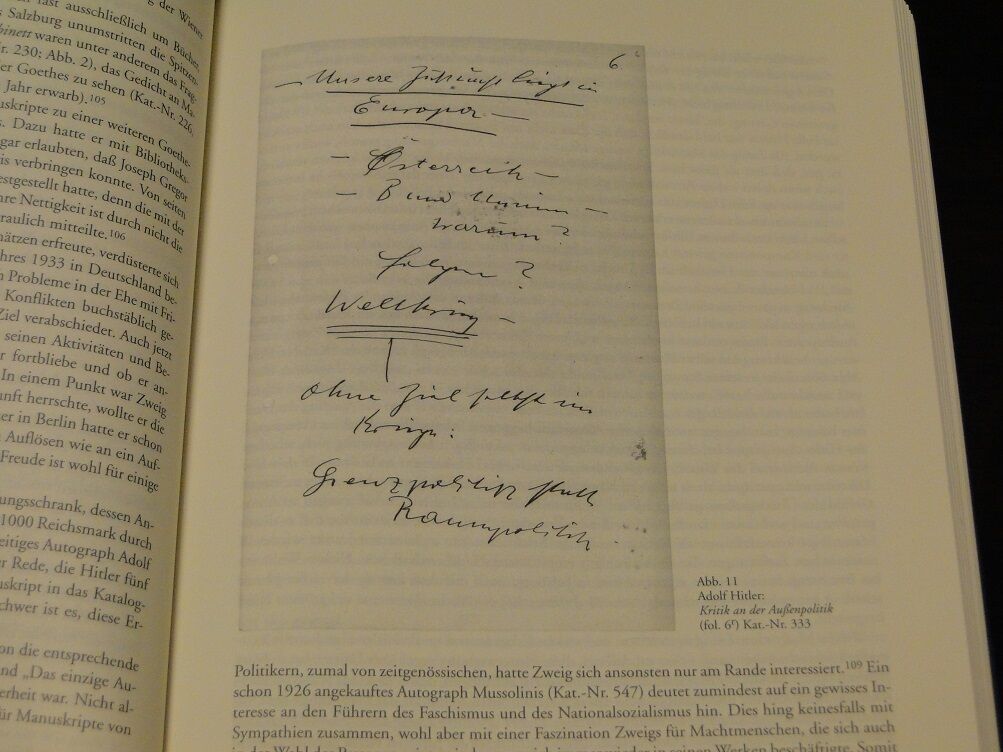 g der Wiener
fast ausschließlich um Bücher,
Salzburg unumstritten die Spitzen-
binett waren unter anderem das Frag-
r. 230; Abb. 2), das Gedicht an Ma-
er Goethes zu sehen (Kat.-Nr. 226,
Jahr erwarb).105
nuskripte zu einer weiteren Goethe-
s. Dazu hatte er mit Bibliotheks-
gar erlaubten, daß Joseph Gregor
is verbringen konnte. Von seiten
estgestellt hatte, denn die mit der
hre Nettigkeit ist durch nicht die
raulich mitteilte.106
hätzen erfreute, verdüsterte sich
hres 1933 in Deutschland be-
n Probleme in der Ehe mit Fri-
Konflikten buchstäblich ge-
Ziel verabschiedet. Auch jetzt
seinen Aktivitäten und Be-
r fortbliebe und ob er an-
In einem Punkt war Zweig
nft herrschte, wollte er die
er in Berlin hatte er schon
Auflösen wie an ein Auf-
Freude ist wohl für einige
ungsschrank, dessen An-
1000 Reichsmark durch
eitiges Autograph Adolf
r Rede, die Hitler fünf
uskript in das Katalog-
chwer ist es, diese Er-
on die entsprechende
nd „Das einzige Au-
erheit war. Nicht al-
für Manuskripte von
6
– Unsere Zukunft liegt in
Europa –
– Österreich –
– B und Union –
warum?
Folgen?
Weltkrieg –
ohne Ziel selbst im
Kriege:
Grenzpolitik statt
Raumpolitik.
Abb. 11
Adolf Hitler:
Kritik an der Außenpolitik
(fol. 6r) Kat.-Nr. 333
Politikern, zumal von zeitgenössischen, hatte Zweig sich ansonsten nur am Rande interessiert.109 Ein
schon 1926 angekauftes Autograph Mussolinis (Kat.-Nr. 547) deutet zumindest auf ein gewisses In-
teresse an den Führern des Faschismus und des Nationalsozialismus hin. Dies hing keinesfalls mit
Sympathien zusammen, wohl aber mit einer Faszination Zweigs für Machtmenschen, die sich auch
in seinen Werken beschäftigte. Somit